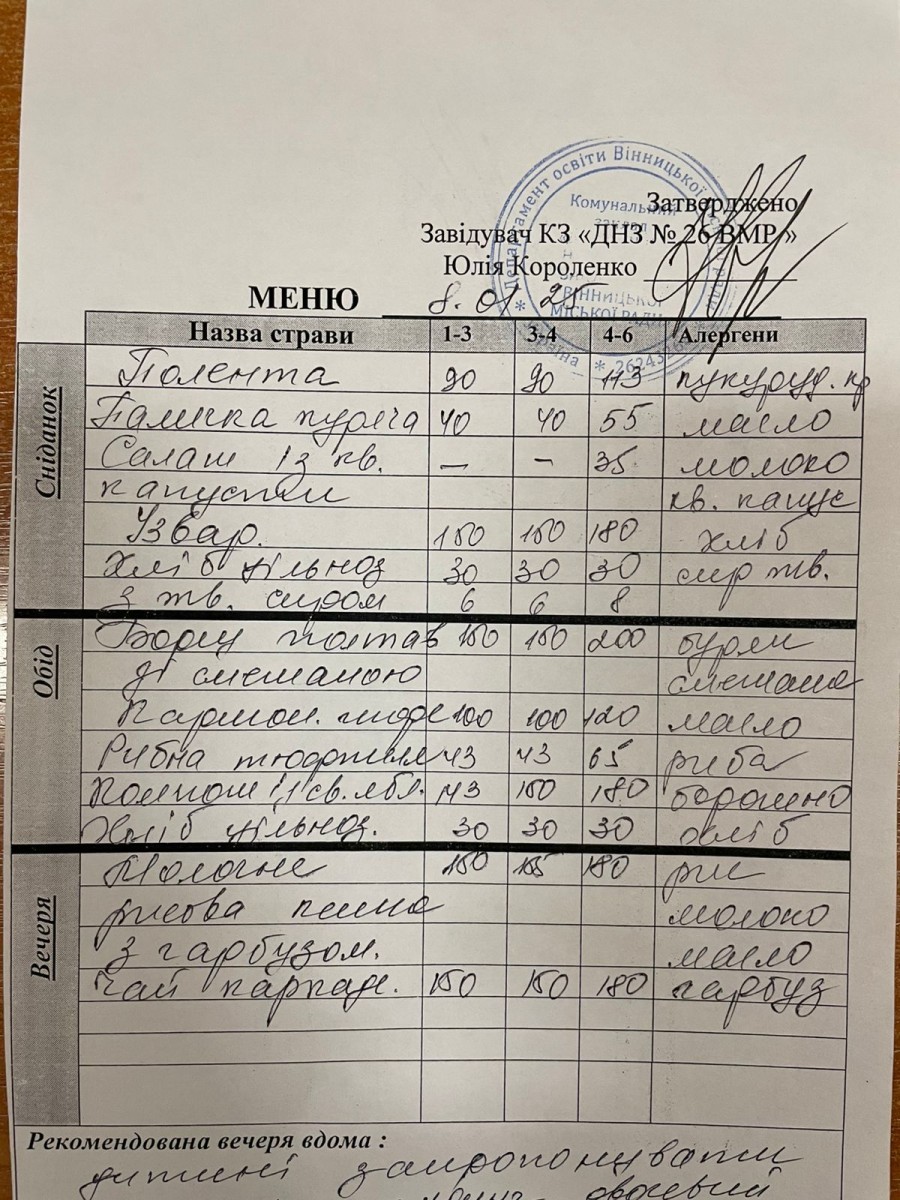 Департамент освіти Вінницької
Комунальний
заклад
ВІННИЦЬКОЇ
МІСЬКОЇ РАДИ
Затверджено
Завідувач КЗ «ДНЗ № 26 ВМР »
Юлія Короленко
МЕНЮ 8. 01 25
Назва страви 1-3 3-4 4-6 Алергени
Сніданок
Полента 90 90 113 кукуруд. кр
Паличка куряча 40 40 55 масло
Салат із кв. — - 35 молоко
капусти кв. капус
Узвар. 150 150 180 хліб
Хліб цільноз 30 30 30 сир тв.
з тв. сиром 6 6 8
Обід
Борщ полтав 150 150 200 буряк
зі сметаною сметана
Картоп. пюре 100 100 120 масло
Рибна тюфтелька 43 43 65 риба
Компот із св. ябл. 143 150 180 борошно
Хліб цільноз. 30 30 30 хліб
Вечеря
Молочне 150 155 180 рис
рисова каша молоко
з гарбузом. масло
Чай каркаде. 150 150 180 гарбуз
Рекомендована вечеря вдома :
дитині запропонувати